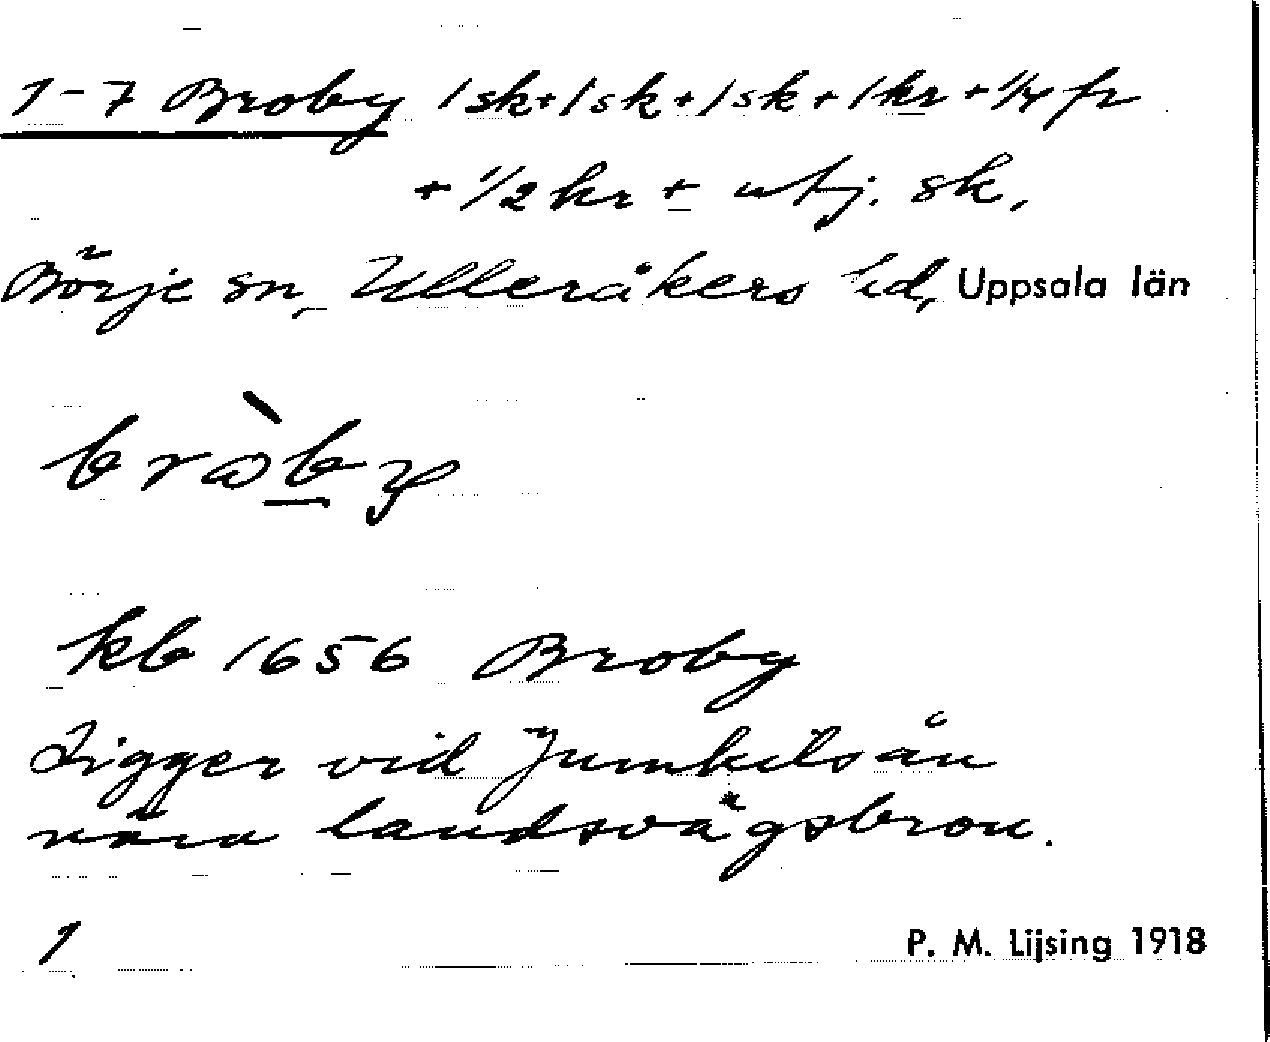 1-7 Broby 1 sk + 1 sk + 1 sk + 1 kr + 1/4 fr
+ 1/2 kr + utj. sk.
Börje sn, Ulleråkers hd, Uppsala län
brò̀by
kb 1656 Broby
Ligger vid Jumkilsån
nära landsvägsbron.
1
P. M. Lijsing 1918